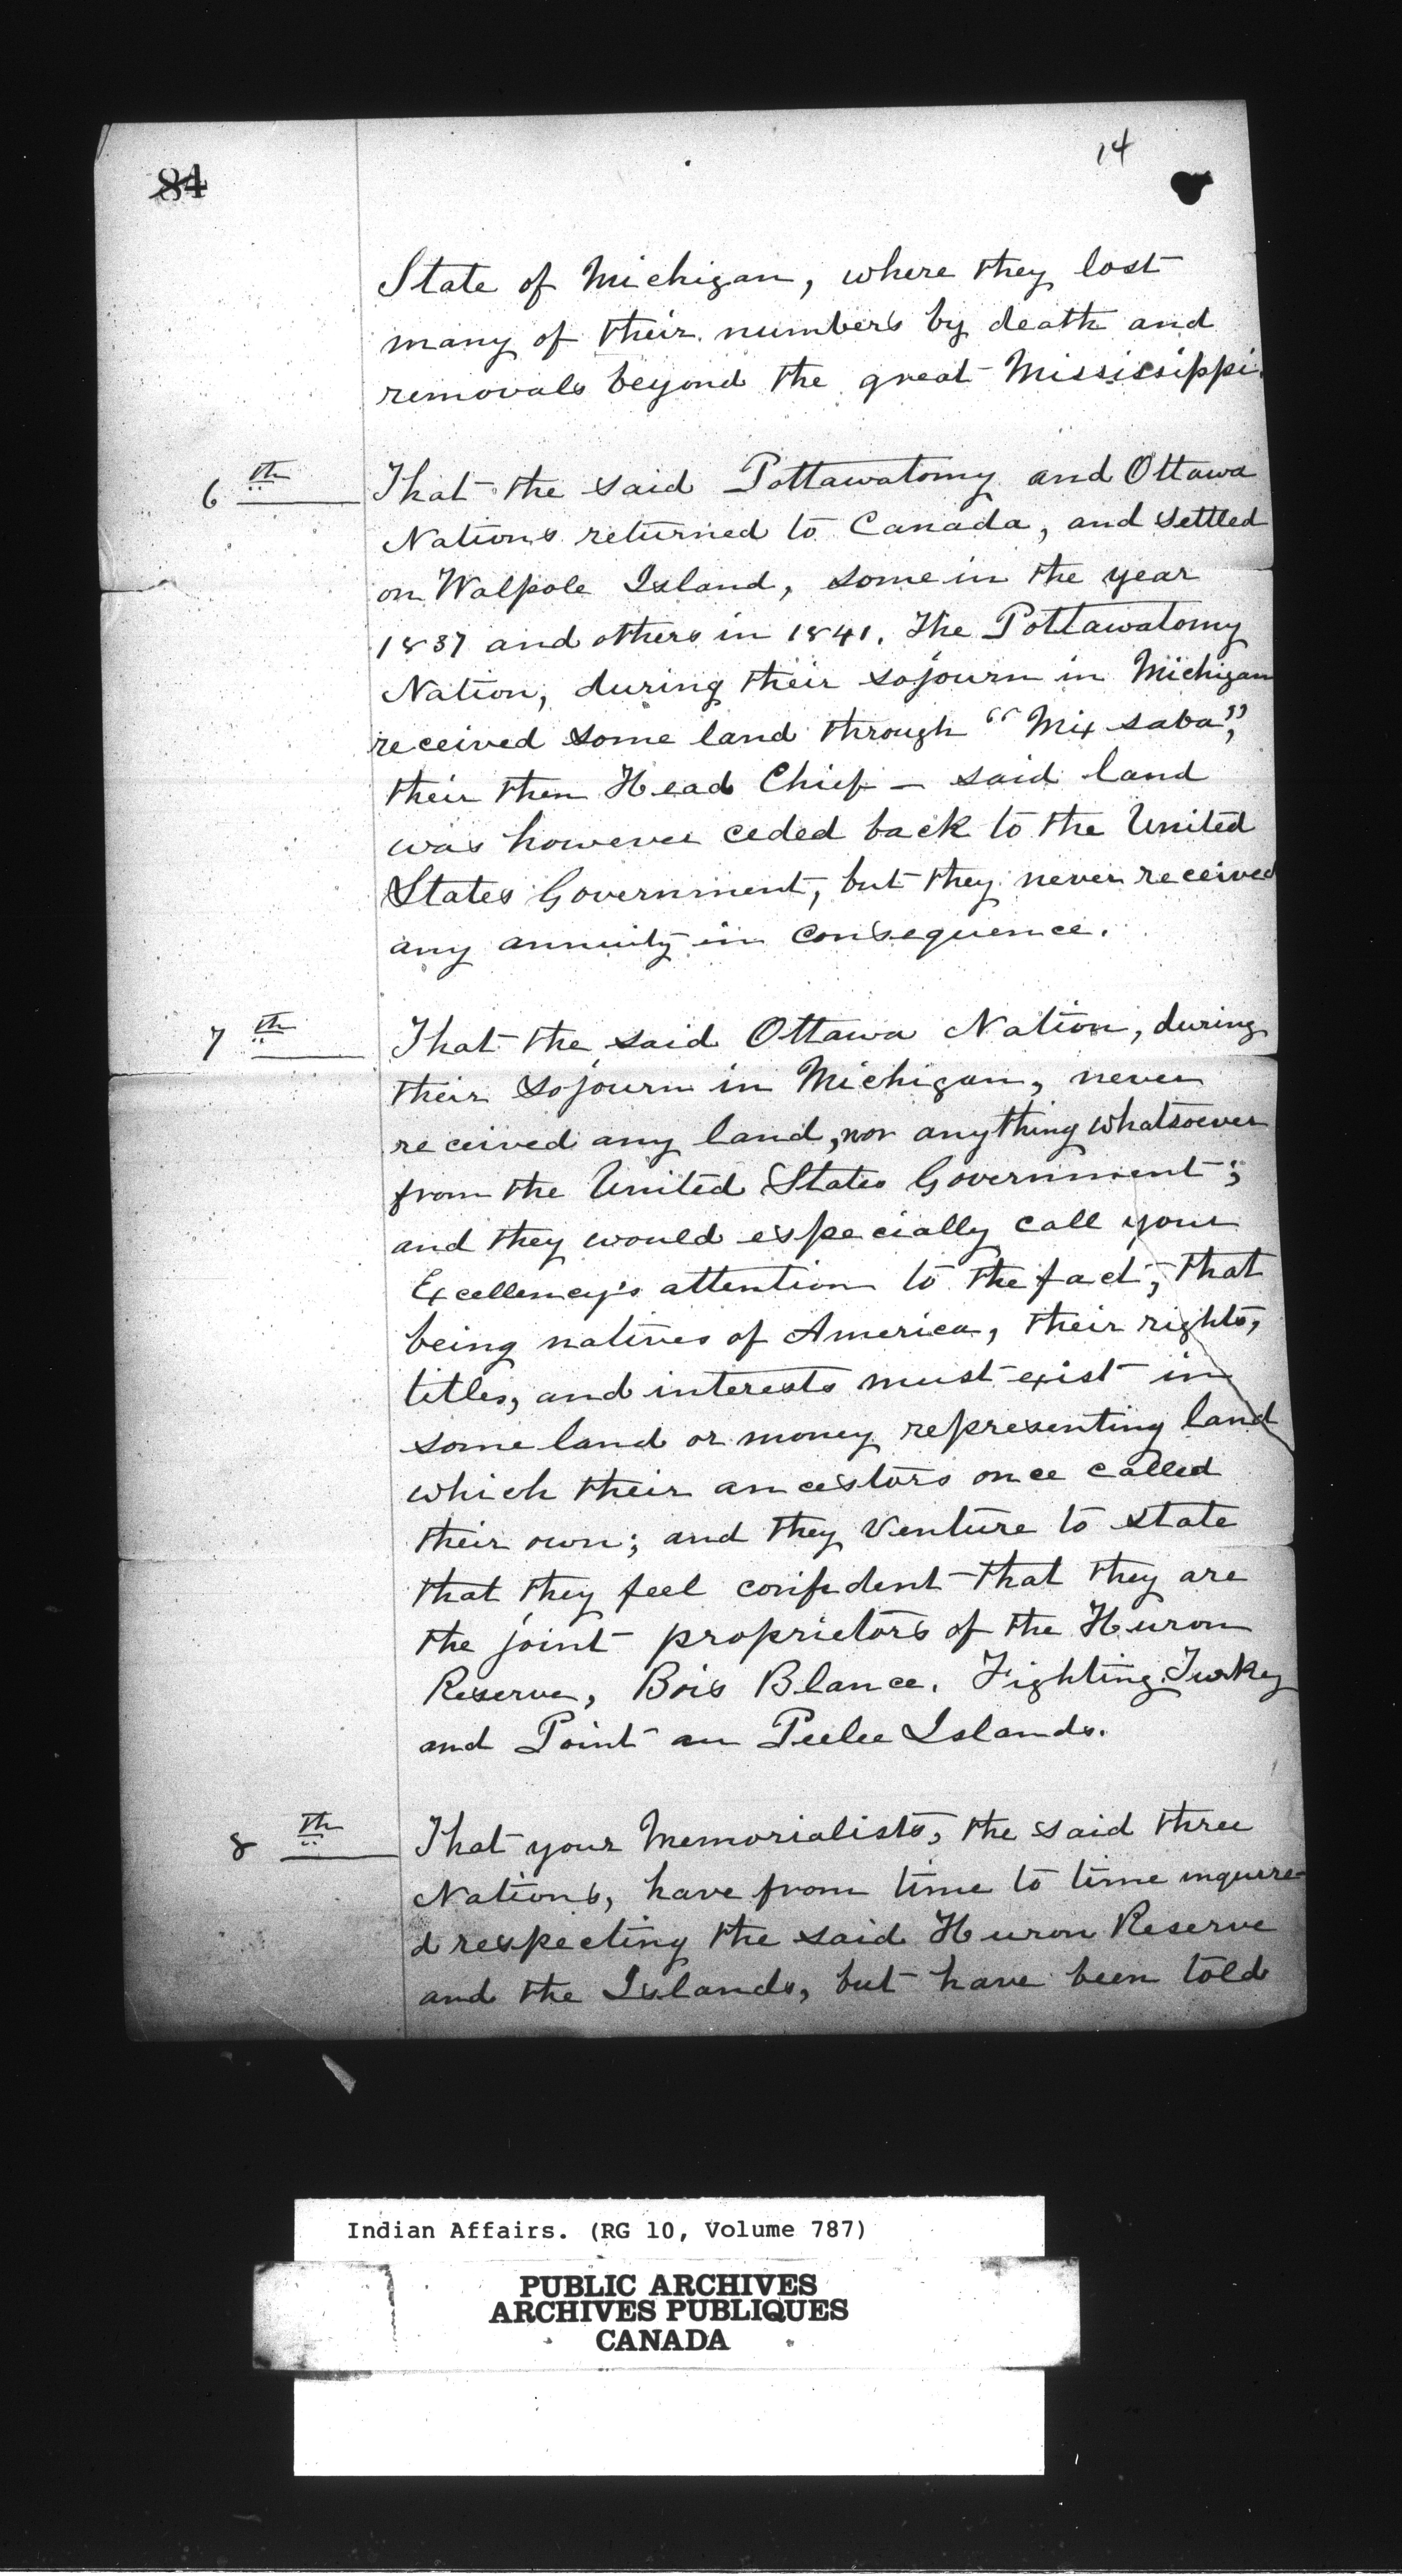 84
14
State of Michigan, where they lost
many of their numbers by death and
removals beyond the great Mississippi.
6th That the said Pottawatomy and Ottawa
Nations returned to Canada, and settled
on Walpole Island, some in the year
1837 and others in 1841. The Pottawatomy
Nation, during their sojourn in Michigan
received some land through "Mix saba",
their then Head Chief - said land
was however ceded back to the United
States Government, but they never received
any annuity in consequence.
7th That the said Ottawa Nation, during
their sojourn in Michigan, never
received any land, nor anything whatsoever
from the United States Government;
and they would especially call your
Excellency's attention to the fact, that
being natives of America, their rights,
titles, and interests must exist in
some land or money representing land
which their ancestors once called
their own; and they venture to state
that they feel confident that they are
the joint proprietors of the Huron
Reserve, Bois Blance, Fighting Turkey
and Point au Peelee Islands.
8th That your Memorialists, the said three
Nations, have from time to time inquire-
d respecting the said Huron Reserve
and the Islands, but have been told
Indian Affairs. (RG 10, Volume 787)
PUBLIC ARCHIVES
ARCHIVES PUBLIQUES
CANADA